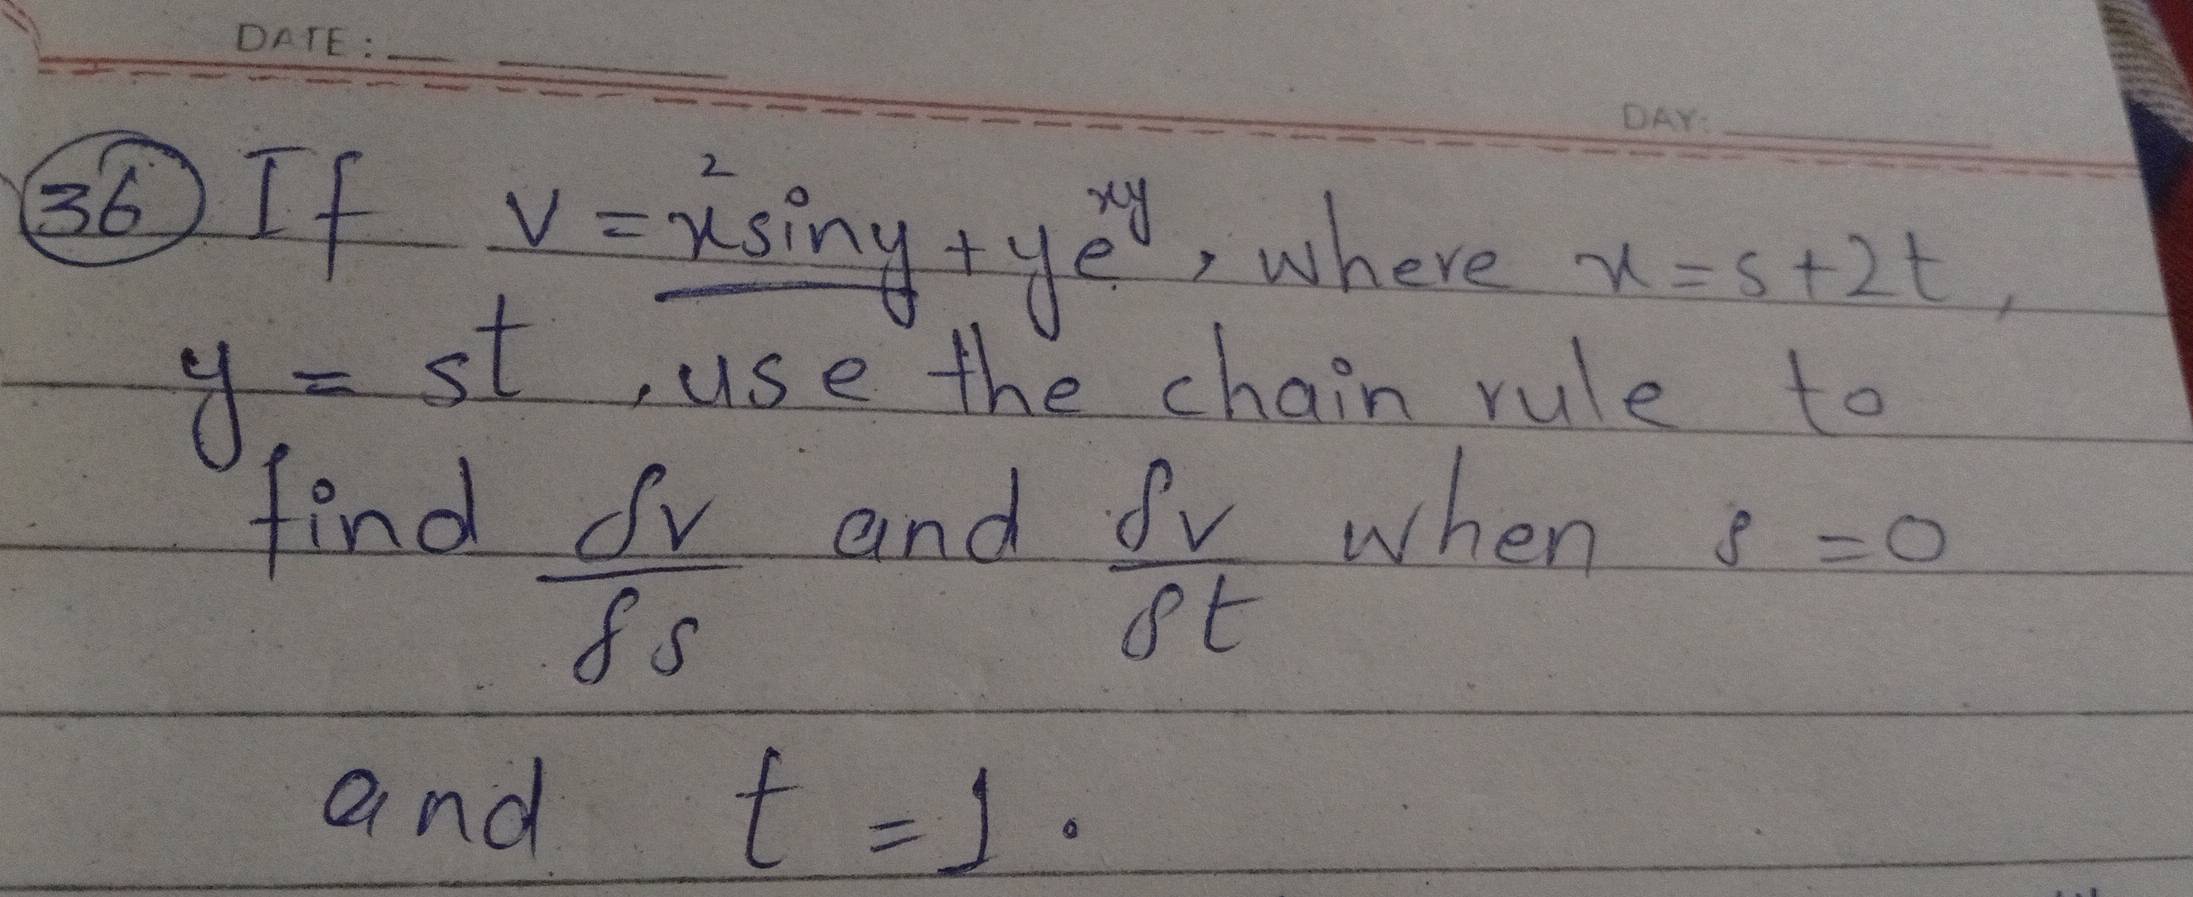 DATE:
DAY:
36 If v = x² sin y + y e^xy, where x = s + 2t,
y = st, use the chain rule to
find δv/δs and δv/δt when s = 0
and t = 1.